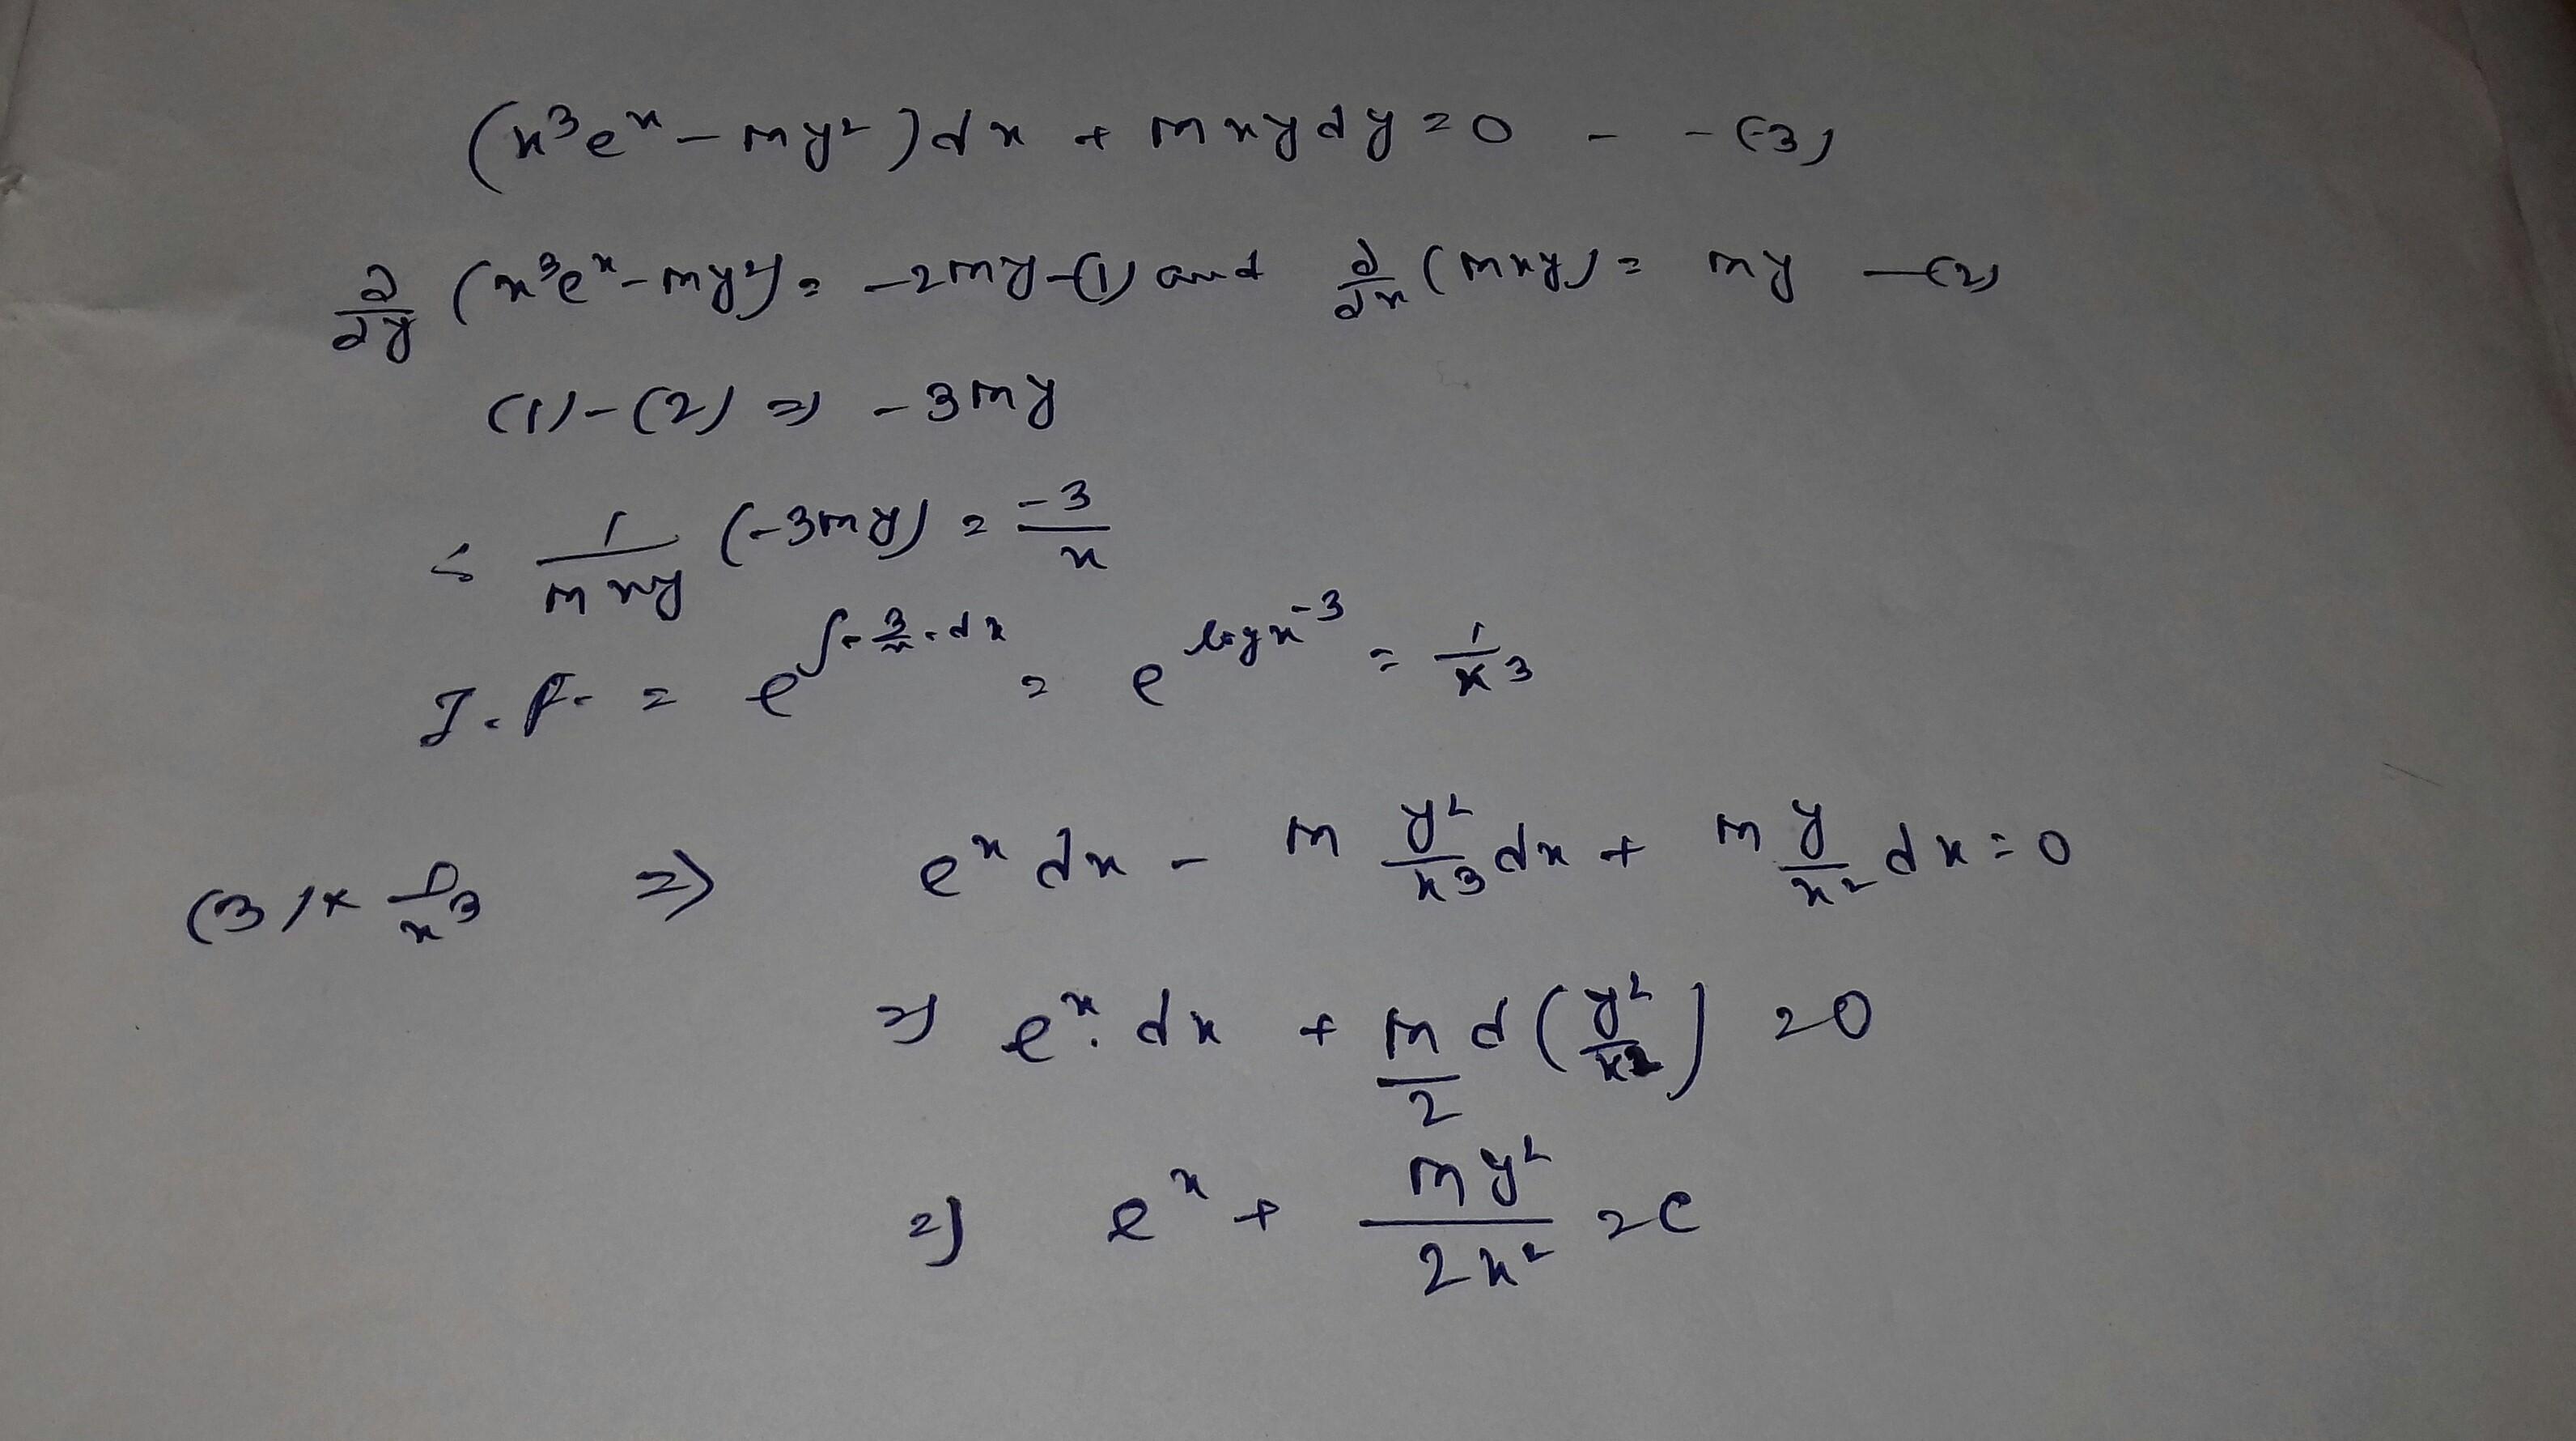 (x³eˣ - my²)dx + mxydy = 0 - - (3)
∂/∂y (x³eˣ - my²) = -2my -(1) and ∂/∂x (mxy) = my -(2)
(1)-(2) ⇒ -3my
∴ 1/mxy (-3my) = -3/x
I.F. = e^∫-3/x.dx = e^log x⁻³ = 1/x³
(3)× 1/x³ ⇒ eˣ dx - m y²/x³ dx + m y/x² dx = 0
⇒ eˣ. dx + m/2 d(y²/x²) = 0
⇒ eˣ + my²/2x² = c